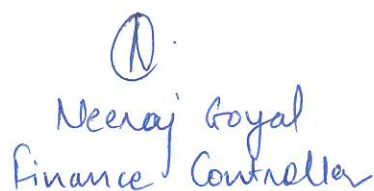 Neeraj Goyal
Finance Controller